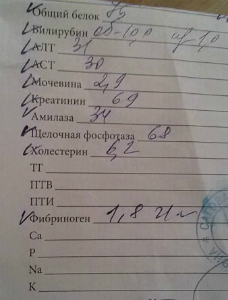 Общий белок
Билирубин об-10,0 пр-1,0
АЛТ 31
АСТ 30
Мочевина 2,9
Креатинин 69
Амилаза 34
Щелочная фосфотаза 68
Холестерин 6,2
ТГ
ПТВ
ПТИ
Фибриноген 1,8 г/л
Ca
P
Na
K